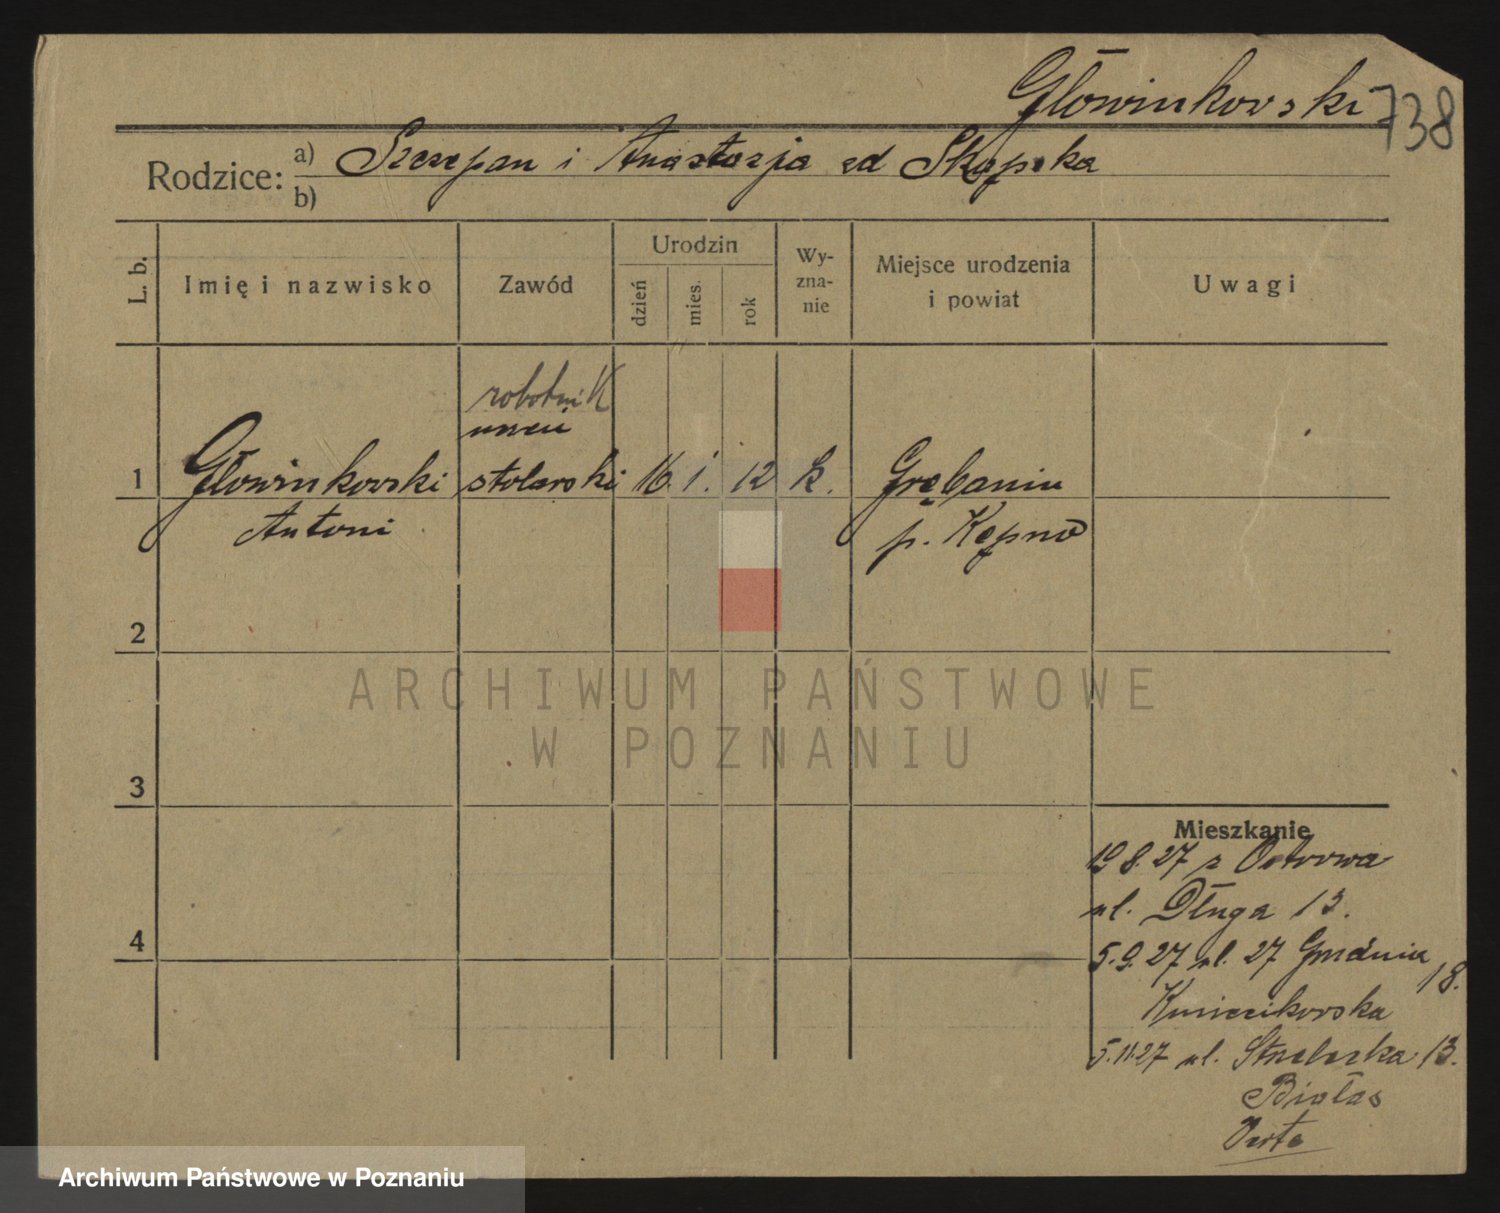 Głowinkowski
738
Rodzice: a) Szczepan i Anastazja zd Skąpska
b)
L. b.
Imię i nazwisko
Zawód
Urodzin
dzień
mies.
rok
Wy-
zna-
nie
Miejsce urodzenia
i powiat
Uwagi
robotnik
uczeń
1 Głowinkowski stolarski 16. 1. 12 k. Grębaniu
Antoni p. Kępno
2
3
4
ARCHIWUM PAŃSTWOWE
W POZNANIU
Mieszkanie
19 8. 27 z Ostrowa
ul. Długa 13.
5. 9. 27 ul. 27 Grudnia 18.
5. 11. 27 ul. Strzelecka 13.
Białas
Archiwum Państwowe w Poznaniu